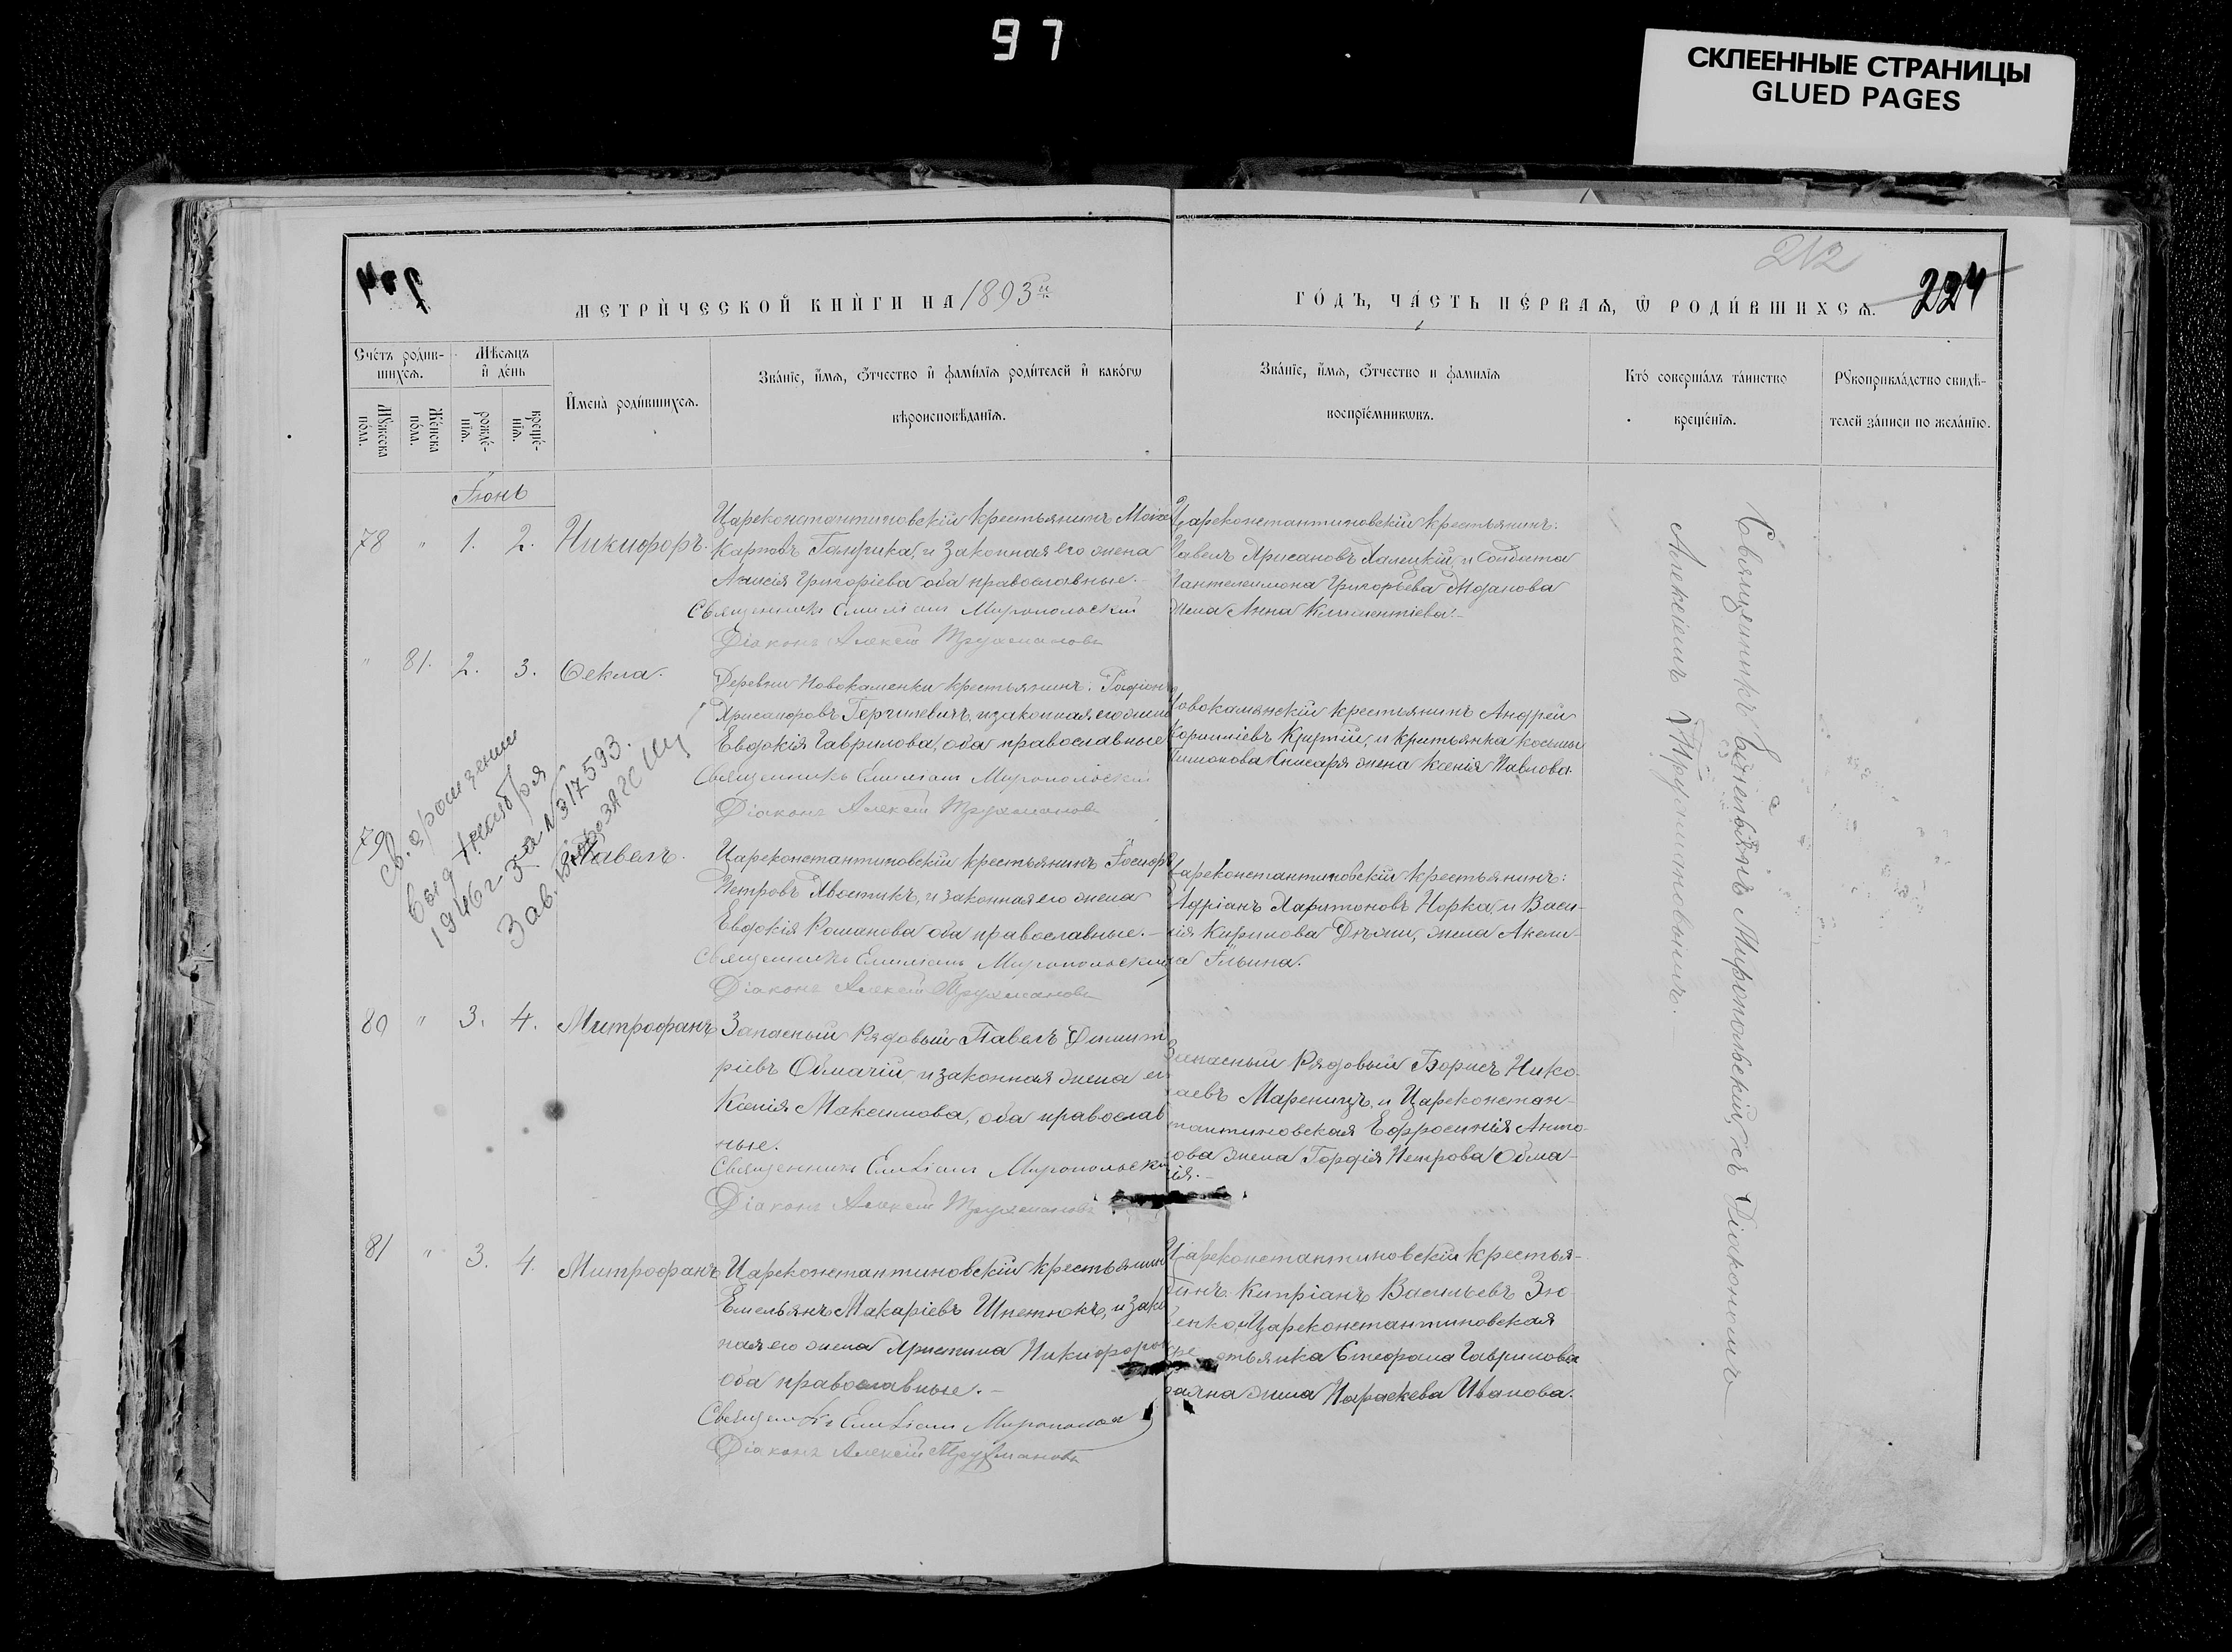 97
СКЛЕЕННЫЕ СТРАНИЦЫ
GLUED PAGES
212
224
МЕТРИ́ЧЕСКОЙ КНИ́ГИ НА 1893й
ГО́ДЪ, ЧА́СТЬ ПЕ́РВАѦ, Ѡ҆ РОДИ́ВШИХСѦ.
Сче́тъ роди́в-
шихсѧ.
Мѣ́сѧцъ
и҆ де́нь
Мꙋ́жеска
по́ла.
Же́нска
по́ла.
рожде́-
нїѧ.
креще́-
нїѧ.
И҆мена̀ роди́вшихсѧ.
Зва́нїе, и҆́мѧ, ѻ҆́тчество и҆ фами́лїѧ роди́телей и҆ како́гѡ
вѣроисповѣ́данїѧ.
Зва́нїе, и҆́мѧ, ѻ҆́тчество и фамилїѧ
воспрїе́мникѡвъ.
Кто̀ соверша́лъ та́инство
креще́нїѧ.
Рꙋкоприкла́дство свидѣ́-
телей за́писи по жела́нїю.
Іюнь
78 " 1. 2. Никифоръ.
Цареконстантиновскій крестьянинъ
Карповъ и законная его жена
Анисія Григоріева оба православные.
Священникъ Емиліанъ Миропольскій
Діаконъ Алексій Трухмановъ
Цареконстантиновскій крестьянинъ:
Павелъ Хрисановъ Халецкій, и Солдата
Пантелеимона Григорьева Жданова
жена Анна Климентіева.
" 81. 2. 3. Ѳекла.
Деревни Новокаменки крестьянинъ: Родіонъ
Хрисанфовъ и законная его жена
Евдокія Гаврилова, оба православные
Священникъ Емиліанъ Миропольскій
Діаконъ Алексій Трухмановъ
Новокаменскій крестьянинъ Андрей
Корниліевъ и крестьянка Космы
жена Ксенія Павлова.
79
Св. о рождении
выд декабря
1946 г. 3го N 317593.
Зав. бюро ЗАГС
Павелъ.
Цареконстантиновскій крестьянинъ Іосифъ
Петровъ Хвостикъ, и законная его жена
Евдокія Романова оба православные.-
Священникъ Емиліанъ Миропольскій
Діаконъ Алексій Трухмановъ
Цареконстантиновскій крестьянинъ:
Адріанъ Харитоновъ Норка, и Васи-
лія Кирилова жена Акели-
на Ильина.
80 " 3. 4. Митрофанъ
Запасный Рядовый Павелъ Димит
ріевъ Обмачій, и законная жена его
Ксенія Максимова, оба православ
ные.
Священникъ Емиліанъ Миропольскій
Діаконъ Алексій Трухмановъ
Запасный Рядовый Борисъ Нико-
лаевъ Мареничъ, и Цареконстан-
тантиновская Ефросинія Анто-
нова жена Гордія Петрова Обма-
чія.-
81 " 3. 4. Митрофанъ
Цареконстантиновскій крестьянинъ
Емельянъ Макаріевъ Шпетюкъ, и закон
ная его жена Христина Никифорова
оба православные.-
Священникъ Емиліанъ Миропольск
Діаконъ Алексій Трухмановъ
Цареконстантиновскій крестья-
нинъ Кипріанъ Васильевъ Зю-
ченко, и Цареконстантиновская
крестьянка Стефана Гаврилова
жена Параскева Иванова.
Священникъ Емельянъ Миропольскій, съ Діакономъ
Алексіемъ Трухмановымъ.